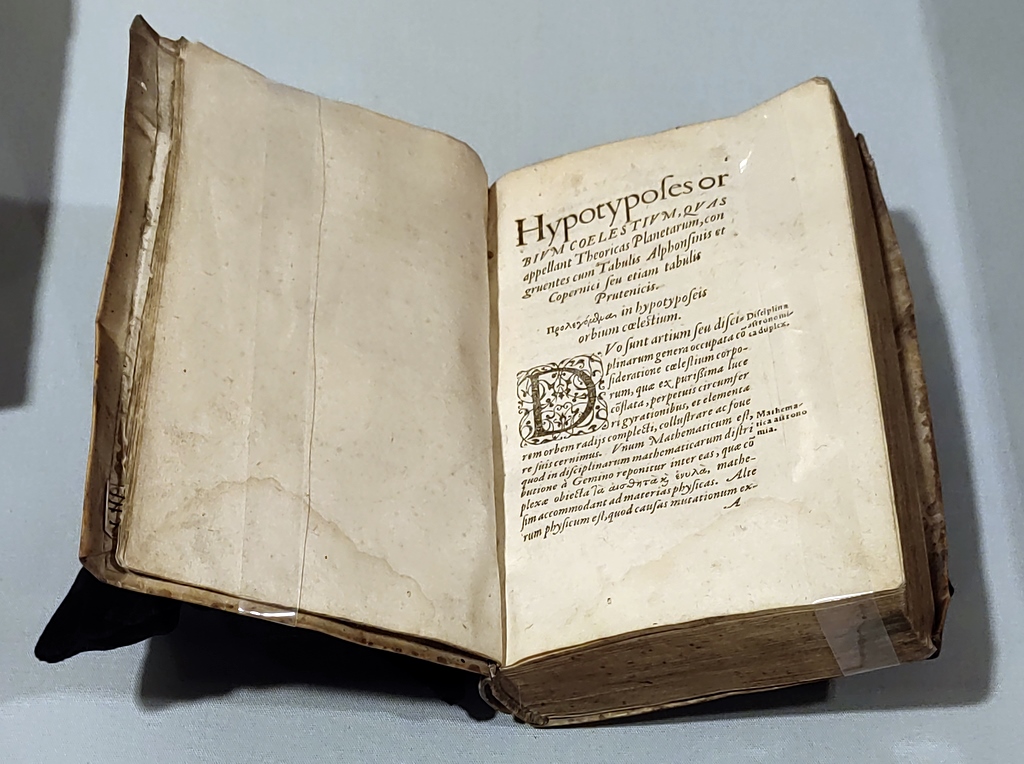 Hypotypoſes or
BIVM COELESTIVM, QVAS
appellant Theoricas Planetarum, con
gruentes cum Tabulis Alphonſinis et
Copernici ſeu etiam tabulis
Prutenicis.
Προλεγόμενα in hypotypoſeis
orbium cœleſtium.
DVo ſunt artium ſeu diſci-
plinarum genera occupata cõ
ſideratione cœleſtium corpo-
rum, quæ ex puriſsima luce
cõflata, perpetuis circumfer
ri gyrationibus, et elementa
rem orbem radijs complecti, colluſtrare ac foue
re ſuis cernimus. Vnum Mathematicum eſt,
quod in diſciplinarum mathematicarum diſtri
butione à Gemino reponitur inter eas, quæ cõ
plexæ obiecta τὰ αἰσθητὰ ἢ ἐνυλὰ, mathe-
ſim accommodant ad materias phyſicas. Alte
rum phyſicum eſt, quod cauſas mutationum ex-
A
Diſciplina
aſtronomi-
ca duplex.
Mathema-
tica aſtrono
mia.